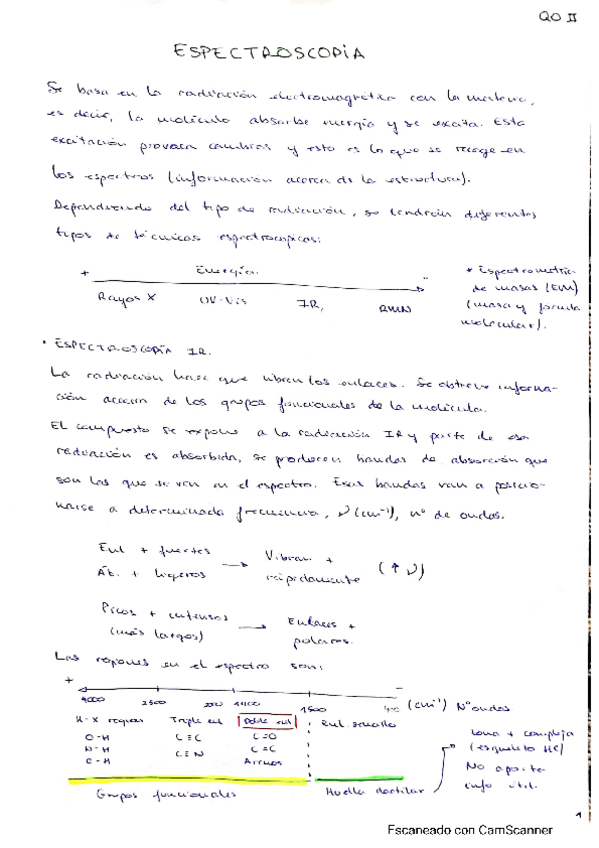 QO II
ESPECTROSCOPIA
Se basa en la radiación electromagnética con la materia,
es decir, la molécula absorbe energía y se excita. Esta
excitación provoca cambios y esto es lo que se recoge en
los espectros (información acerca de la estructura).
Dependiendo del tipo de radiación, se tendrán diferentes
tipos de técnicas espectroscópicas:
+ Energía -
Rayos X UV-Vis IR, RMN
* Espectrometría
de masas (EM)
(masa y fórmula
molecular).
· ESPECTROSCOPÍA IR.
La radiación hace que vibren los enlaces. Se obtiene informa-
ción acerca de los grupos funcionales de la molécula.
El compuesto se expone a la radiación IR y parte de esa
radiación es absorbida, se producen bandas de absorción que
son las que se ven en el espectro. Esas bandas van a posicio-
narse a determinada frecuencia, ν (cm⁻¹), nº de ondas.
Enl + fuertes
Át. + ligeros → Vibran +
rápidamente (↑ ν)
Picos + intensos
(más largos) → Enlaces +
polares.
Las regiones en el espectro son:
+ -
4000 2500 2000 1500 (cm⁻¹) Nº ondas
H-X region Triple enl Doble enl Enl. sencillo
O-H C≡C C=O
N-H C≡N C=C
C-H Arenos
Grupos funcionales Huella dactilar
Zona + compleja
(esqueleto HC)
No aporta
info útil.
1
Escaneado con CamScanner